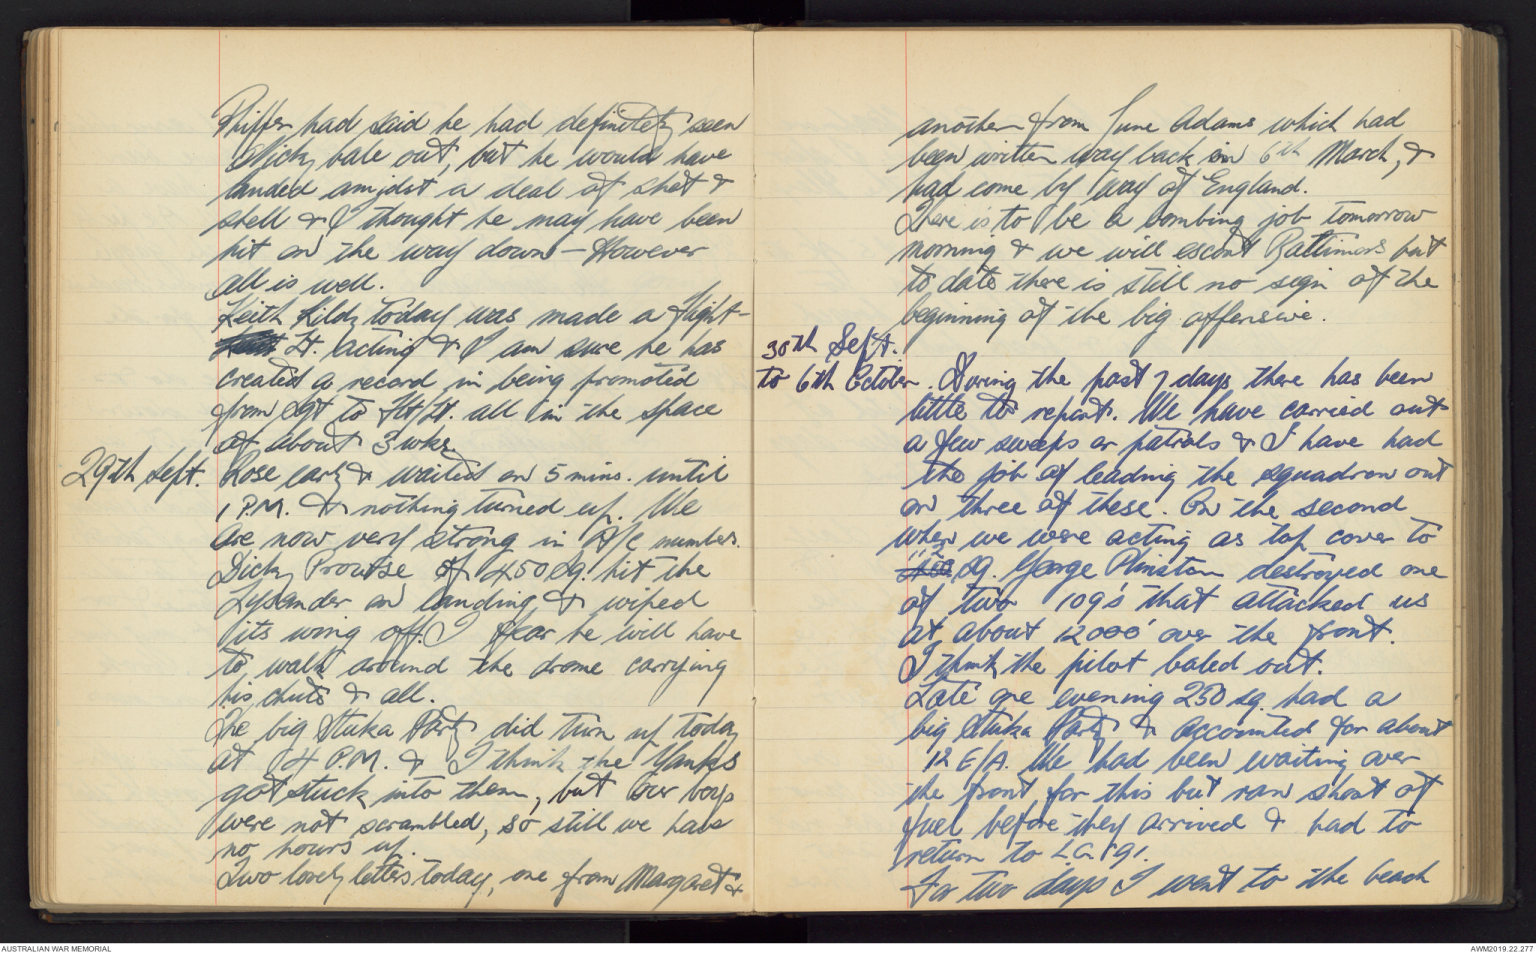 Sniffer had said he had definitely seen
Nicky bale out, but he would have
landed amidst a deal of shot &
shell & I thought he may have been
hit on the way down - However
all is well.
Keith Kildy today was made a flight-
Lt. acting & I am sure he has
created a record in being promoted
from Sgt to Flt/Lt. all in the space
of about 3 wks
29th Sept. Rose early & waited on 5 mins. until
1 P.M. & nothing turned up. We
are now very strong in A/C number.
Dicky Prowse of 450 Sq. hit the
Lysander on landing, & wiped
its wing off. I fear he will have
to walk around the drome carrying
his chute & all.
The big Stuka Party did turn up today
at 4 P.M. & I think the Yanks
got stuck into them, but our boys
were not scrambled, so still we have
no hours up.
Two lovely letters today, one from Margaret &
another from June Adams which had
been written way back in 6th March, &
had come by way of England.
There is to be a bombing job tomorrow
morning & we will escort Baltimores but
to date there is still no sign of the
beginning of the big offensive.
30th Sept.
to 6th October. During the past 7 days there has been
little to report. We have carried out
a few sweeps or patrols & I have had
the job of leading the squadron out
on three of these. On the second
when we were acting as top cover to
Sq. George Plinston destroyed one
of two 109's that attacked us
at about 12000' over the front.
I think the pilot baled out.
Late one evening 250 sq. had a
big Stuka Party & accounted for about
12 E/A. We had been waiting over
the front for this but ran short of
fuel before they arrived & had to
return to L.G. 91.
For two days I went to the beach
AUSTRALIAN WAR MEMORIAL
AWM2019.22.277